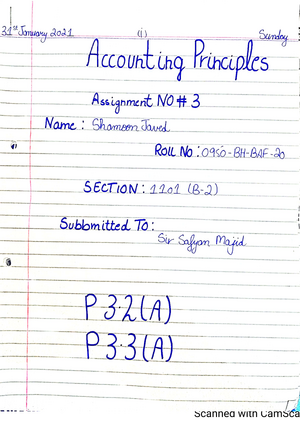 31st January 2021 (i) Sunday
Accounting Principles
Assignment NO # 3
Name : Shamoon Javed
ROLL NO : 0950-BH-BAF-20
SECTION : 1101 (B-2)
Subbmitted To :
Sir Safyan Majid
P 3.2 (A)
P 3.3 (A)
Scanned with CamSca